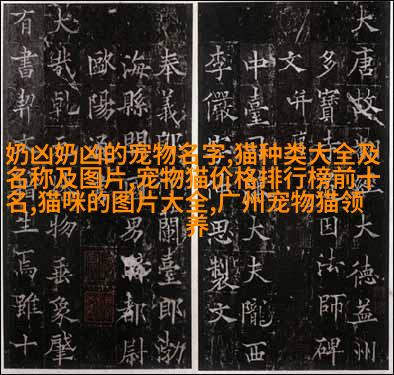 奶凶奶凶的宠物名字,猫种类大全及
名称及图片,宠物猫价格排行榜前十
名,猫咪的图片大全,广州宠物猫领
养
大唐故大德益州
多寶寺因法師碑
文并
中臺司大夫隴西
李儼思製文
奉義郎蘭臺郎渤
海縣開男都尉
歐陽
大哉乾物垂象肇
有書契生焉雖十